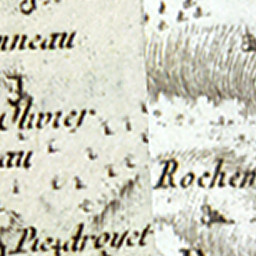 nneau
Olivier
au
Rochem
Piedrouet